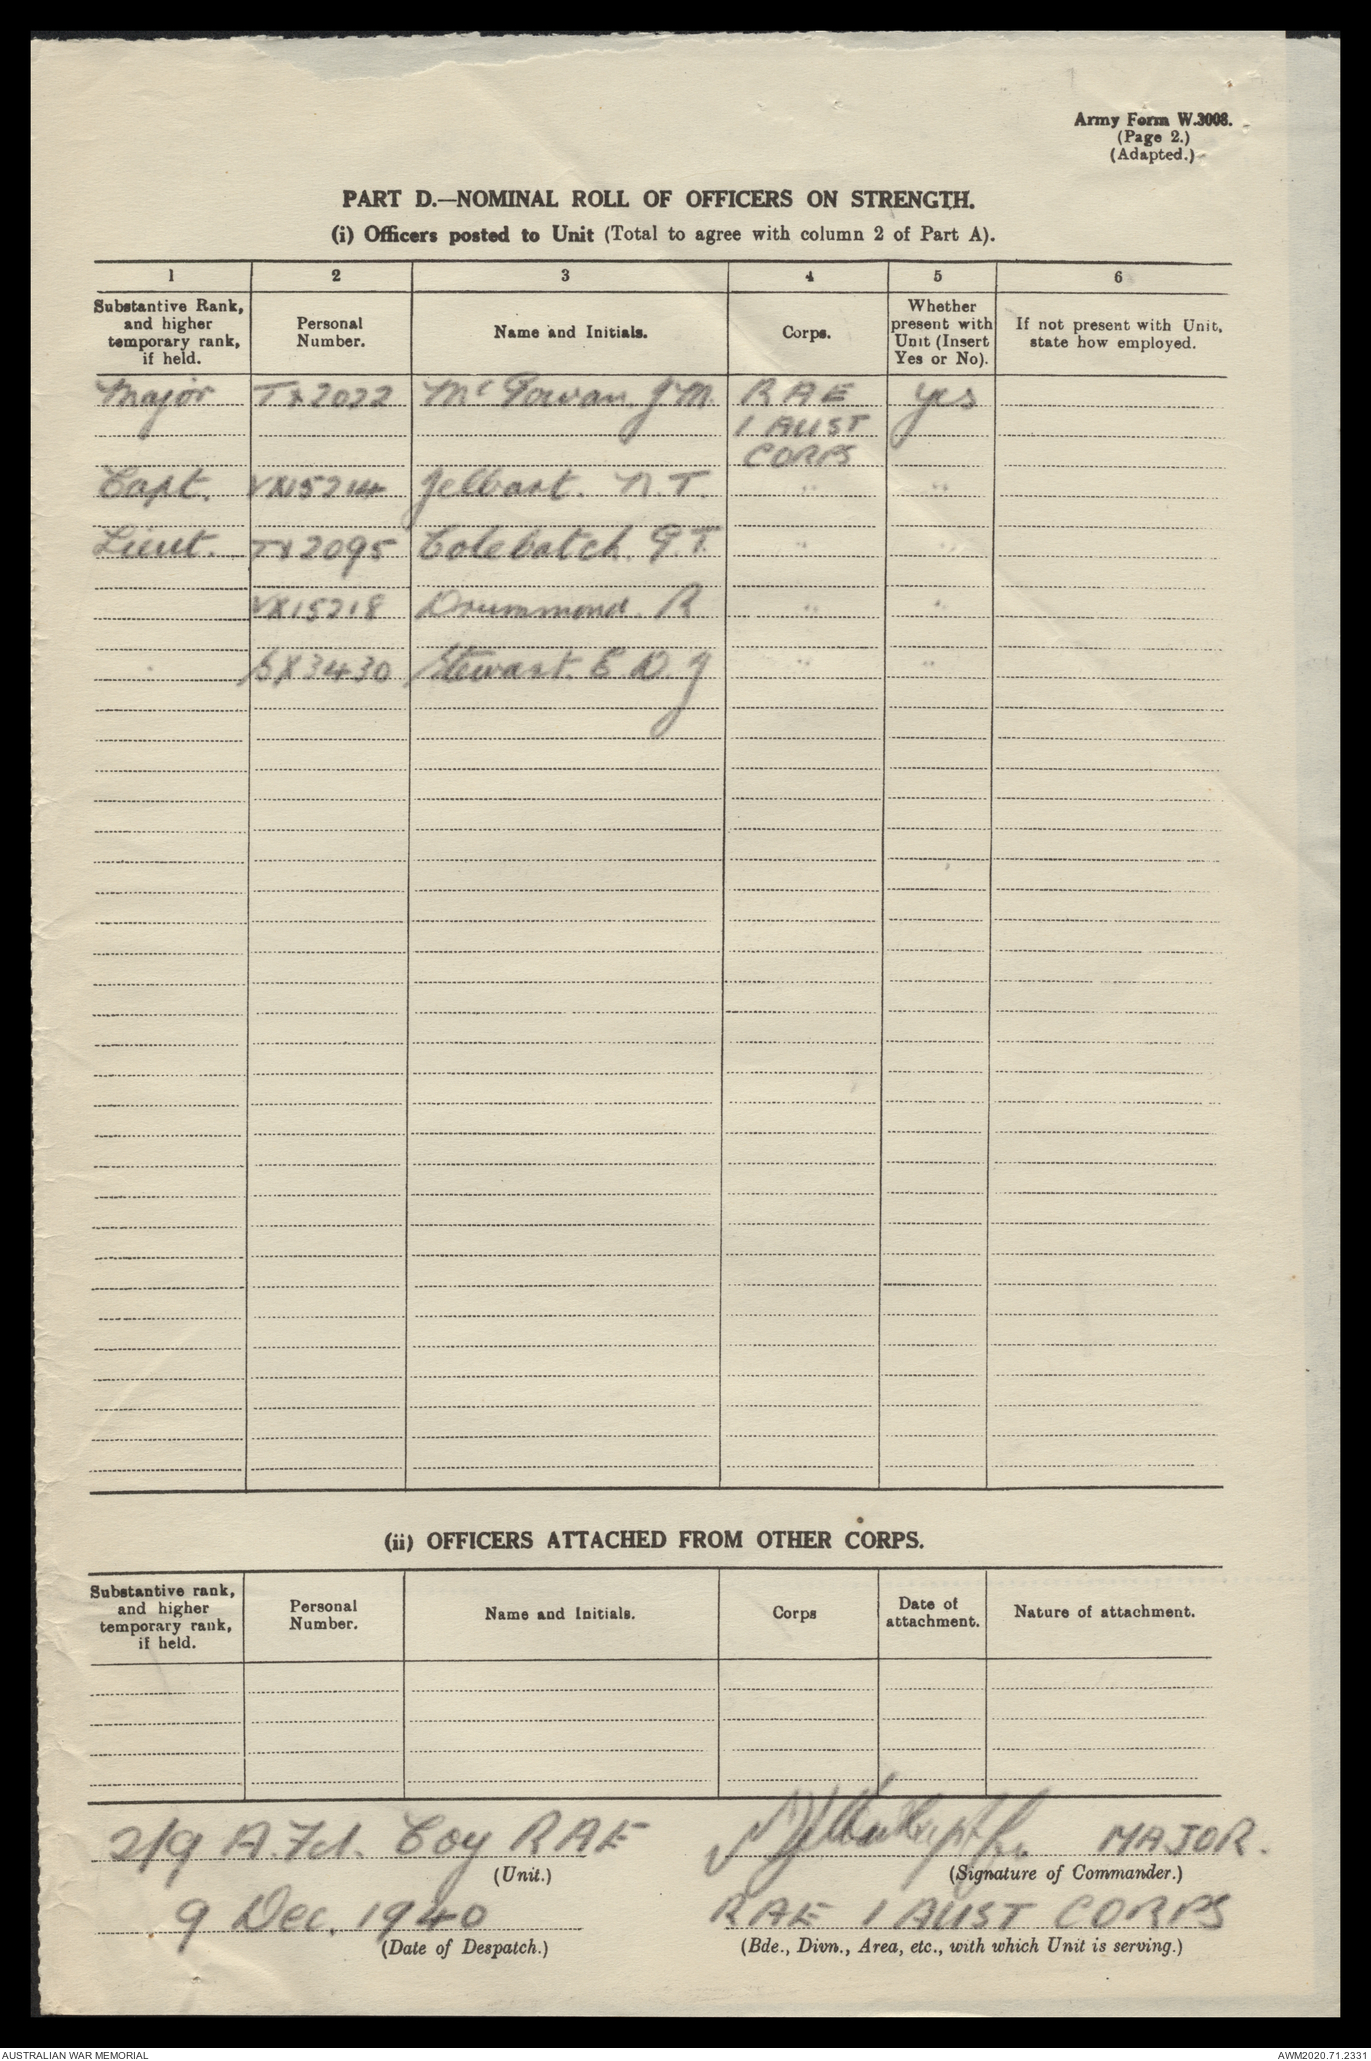 Army Form W.3008.
(Page 2.)
(Adapted.)
PART D.—NOMINAL ROLL OF OFFICERS ON STRENGTH.
(i) Officers posted to Unit (Total to agree with column 2 of Part A).
1 2 3 4 5 6
Substantive Rank, and higher temporary rank, if held. Personal Number. Name and Initials. Corps. Whether present with Unit (Insert Yes or No). If not present with Unit, state how employed.
Major TX2022 McGowan. J M. RAE yes
1 AUST
CORPS
Capt. VX15214 Jelbart. N. T. " "
Lieut. TX2095 Colebatch. G. T. " "
VX15218 Drummond. R " "
SX3430 Stewart. E. D. J " "
(ii) OFFICERS ATTACHED FROM OTHER CORPS.
Substantive rank, and higher temporary rank, if held. Personal Number. Name and Initials. Corps Date of attachment. Nature of attachment.
2/9 A. Fd. Coy RAE MAJOR.
(Unit.) (Signature of Commander.)
9 Dec. 1940 RAE 1 AUST CORPS
(Date of Despatch.) (Bde., Divn., Area, etc., with which Unit is serving.)
AUSTRALIAN WAR MEMORIAL AWM2020.71.2331